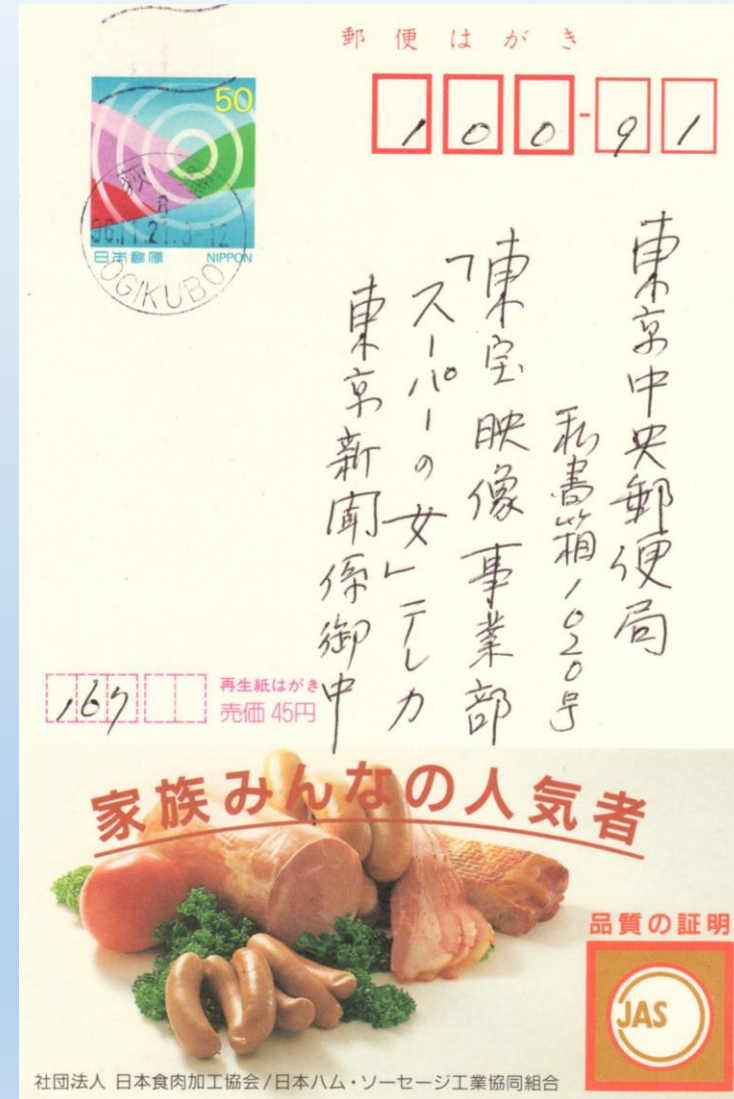 郵便はがき
50
日本郵便 NIPPON
OGIKUBO
100-91
東京中央郵便局
私書箱1020号
東宝映像事業部
「スーパーの女」テレカ
東京新聞係御中
167
再生紙はがき
売価 45円
家族みんなの人気者
品質の証明
JAS
社団法人 日本食肉加工協会/日本ハム・ソーセージ工業協同組合